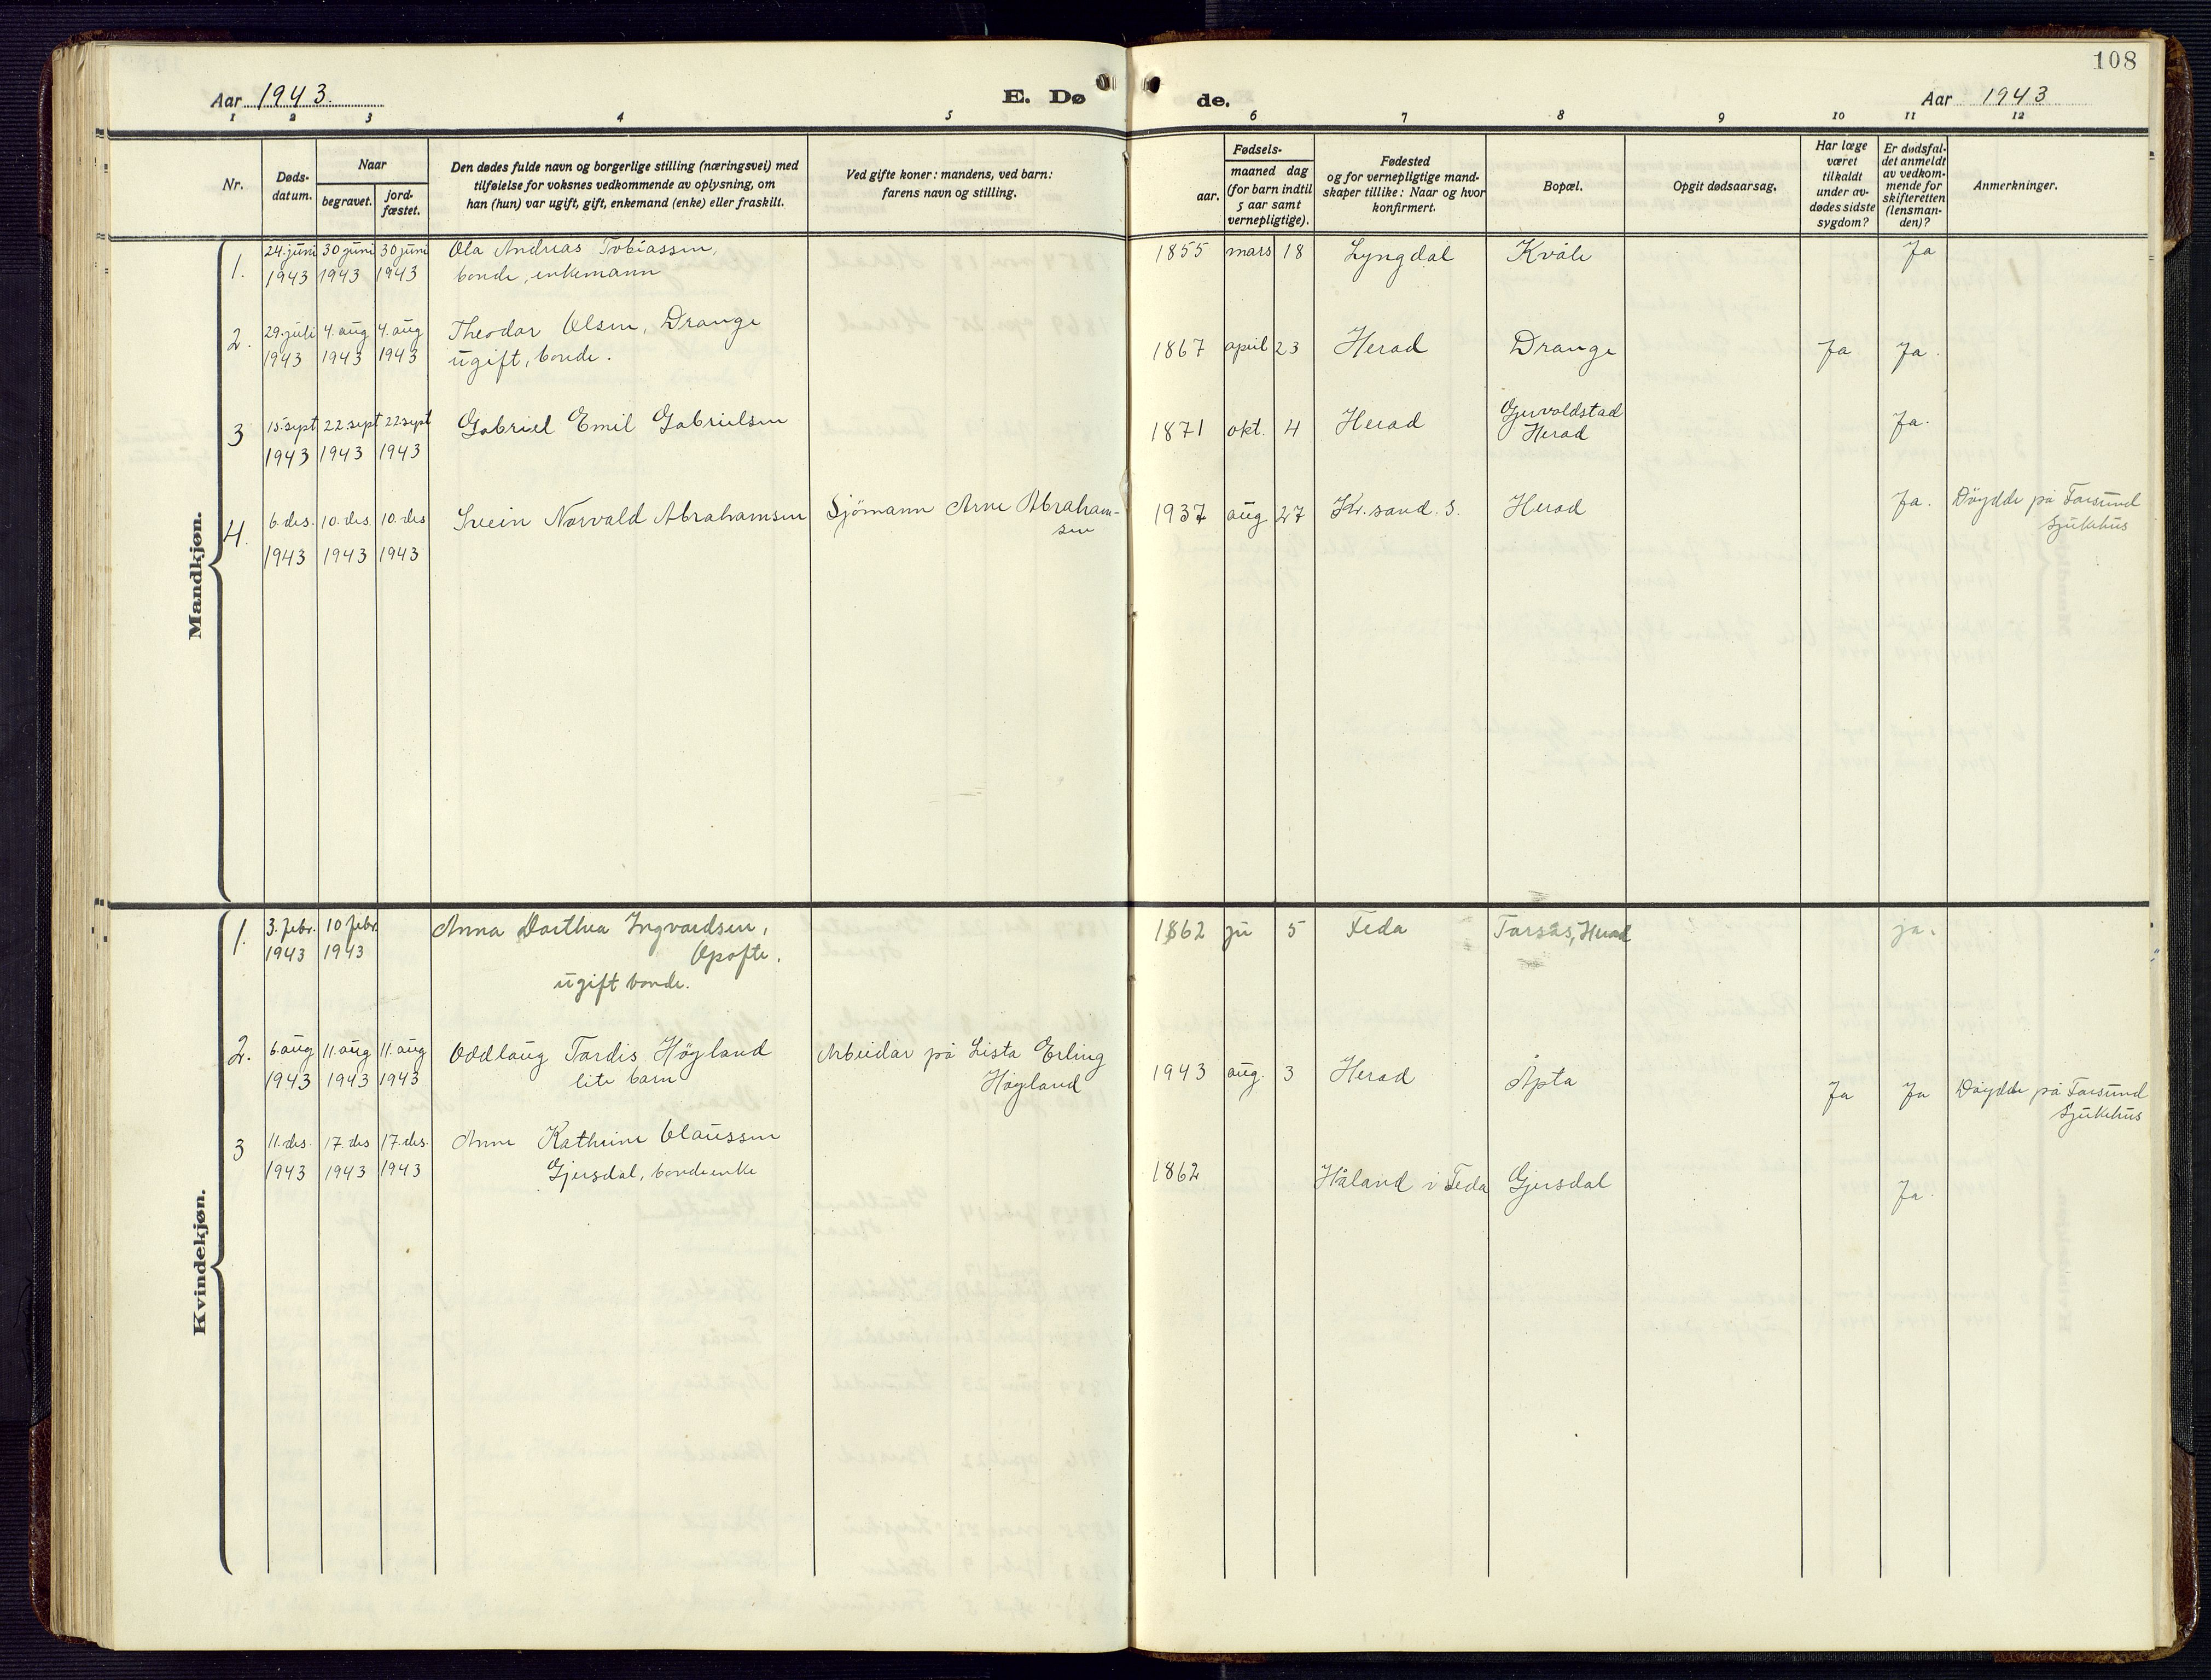 108
Aar 1943. E. Dø de. Aar 1943
1 2 3 4 5 6 7 8 9 10 11 12
Nr.
Døds-
datum.
Naar
begravet.
jord-
fæstet.
Den dødes fulde navn og borgerlige stilling (næringsvei) med
tilføielse for voksnes vedkommende av oplysning, om
han (hun) var ugift, gift, enkemand (enke) eller fraskilt.
Ved gifte koner: mandens, ved barn:
farens navn og stilling.
Fødsels-
aar.
maaned dag
(for barn indtil
5 aar samt
vernepligtige).
Fødested
og for vernepligtige mand-
skaper tillike: Naar og hvor
konfirmert.
Bopæl.
Opgit dødsaarsag.
Har læge
været
tilkaldt
under av-
dødes sidste
sygdom?
Er dødsfal-
det anmeldt
av vedkom-
mende for
skifteretten
(lensman-
den)?
Anmerkninger.
Mandkjøn.
1. 24. juni 30 juni 30 juni Ola Andreas Tobiassen, 1855 mars 18 Lyngdal Kvåle Ja
1943 1943 1943 bonde, enkemann
2. 29. juli 4. aug 4. aug Theodor Olsen, Drange 1867 april 23 Herad Drange Ja Ja.
1943 1943 1943 ugift, bonde.
3 15. sept 22. sept 22 sept Gabriel Emil Gabrielsen 1871 okt. 4 Herad Gjervoldstad Ja.
1943 1943 1943 Herad
4. 6. des. 10. des. 10. des Svein Norvald Abrahamsen Sjömann Arne Abraham- 1937 aug 27 Kr.sand. S. Herad Ja. Döydde på Farsund
sen Sjukehus
1943 1943 1943
Kvindekjøn.
1. 3. febr. 10 febr. Anna Dorthea Ingvardsen, 1862 ju 5 Feda Farsås, Herad ja.
1943 1943 Opofte.
ugift bonde.
2. 6. aug 11. aug 11. aug Oddlaug Tordis Höyland Arbeidar på Lista Erling 1943 aug. 3 Herad Åpta Ja Ja Döydde på Farsund
1943 1943 1943 lite barn Höyland Sjukehus
3 11. des. 17. des 17. des. Anne Kathrine Olaussen 1862 Håland i Feda Gjersdal Ja.
1943 1943 1943 Gjersdal, bondeenke